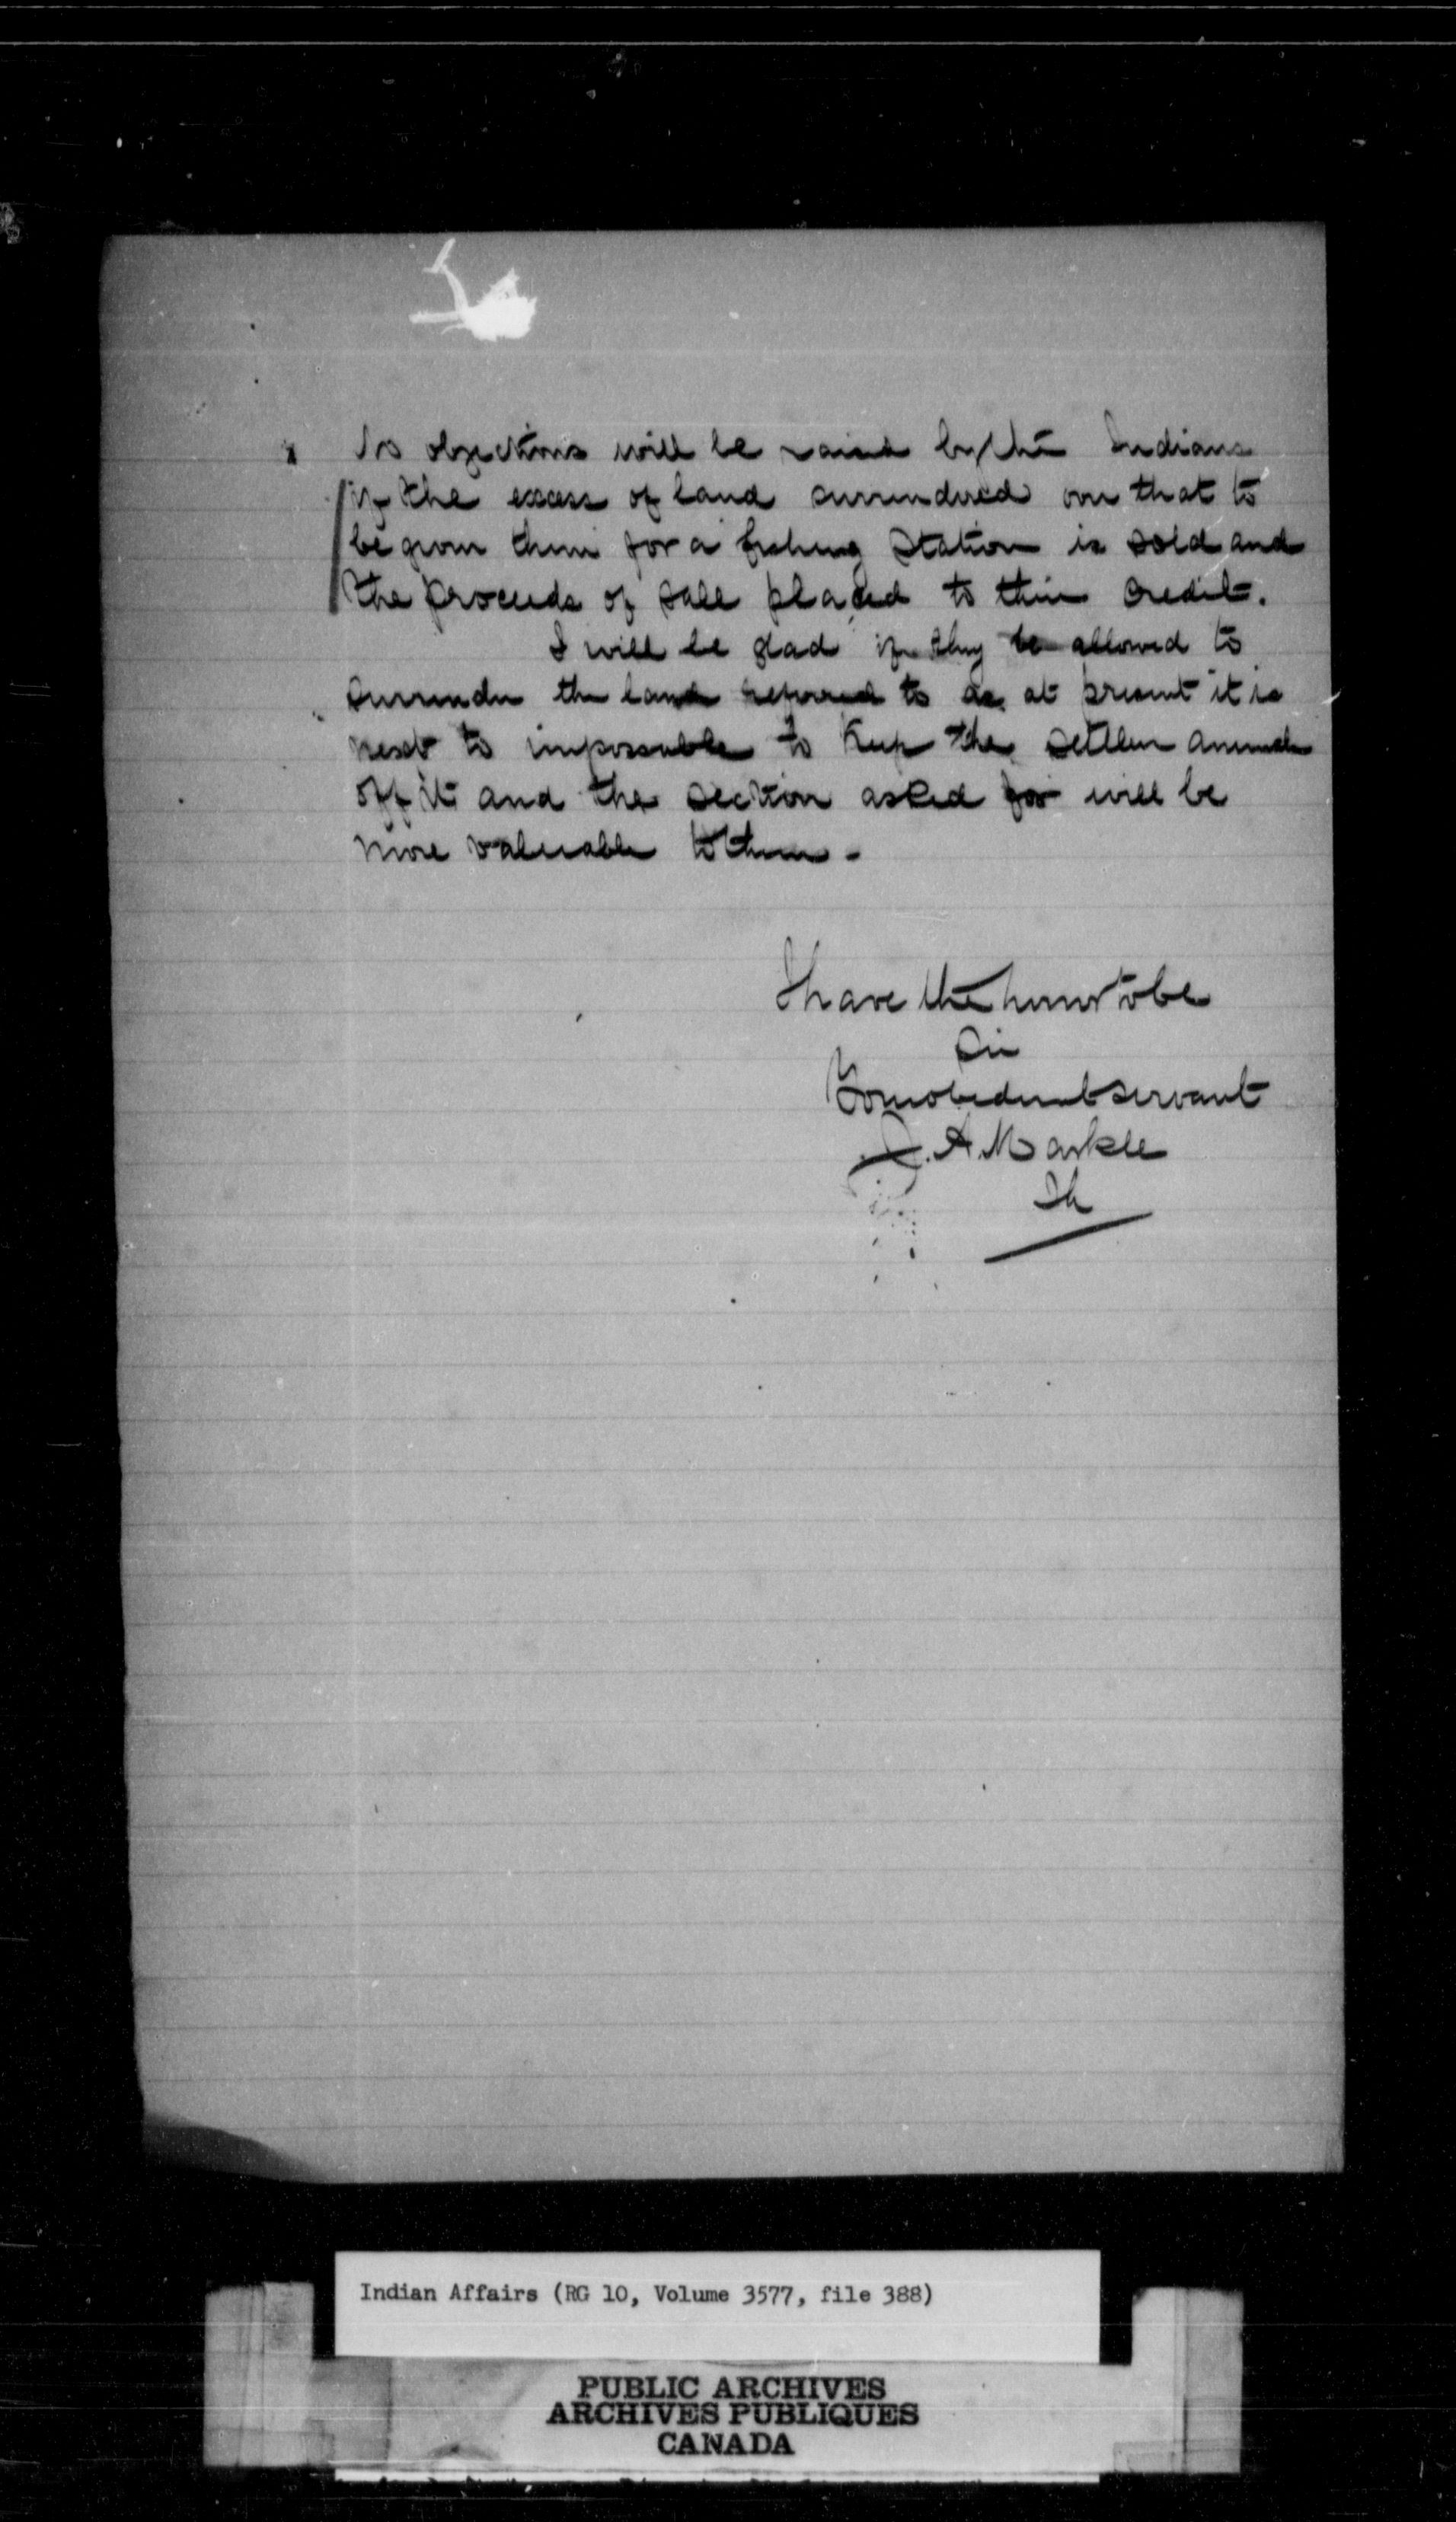 No objections will be raised by the Indians
if the excess of land surrendered over that to
be given them for a fishing station is sold and
the proceeds of sale placed to their credit.
I will be glad if they be allowed to
surrender the land referred to as at present it is
next to impossible to keep the settlers animals
off it and the section asked for will be
more valuable to them -
I have the honor to be
Sir
Your obedient servant
J. A. Markle
IA
Indian Affairs (RG 10, Volume 3577, file 388)
PUBLIC ARCHIVES
ARCHIVES PUBLIQUES
CANADA